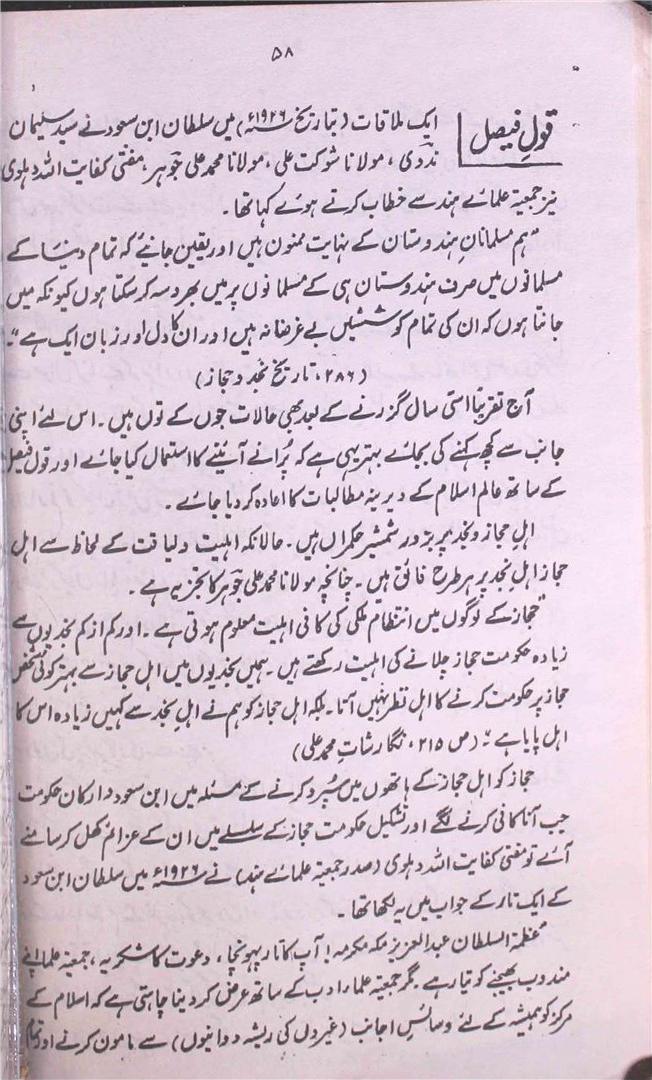 ۵۸
قولِ فیصل
ایک ملاقات (بتاریخ ۱۹۲۶ء) میں سلطان ابن سعود نے سید سلیمان
ندوی، مولانا شوکت علی، مولانا محمد علی جوہر، مفتی کفایت اللہ دہلوی
نیز جمعیۃ علمائے ہند سے خطاب کرتے ہوئے کہا تھا۔
"ہم مسلمانانِ ہندوستان کے نہایت ممنون ہیں اور یقین جانئے کہ تمام دنیا کے
مسلمانوں میں صرف ہندوستان ہی کے مسلمانوں پر میں بھروسہ کر سکتا ہوں کیونکہ میں
جانتا ہوں کہ ان کی تمام کوششیں بے غرضانہ ہیں اور ان کا دل اور زبان ایک ہے"۔
(۲۸۶، تاریخ نجد و حجاز)
آج تقریباً اسّی سال گزرنے کے بعد بھی حالات جوں کے توں ہیں۔ اس لئے اپنی
جانب سے کچھ کہنے کی بجائے بہتر یہی ہے کہ پرانے آئینے کا استعمال کیا جائے اور قول فیصل
کے ساتھ عالم اسلام کے دیرینہ مطالبات کا اعادہ کر دیا جائے۔
اہلِ حجاز و نجد پر بزور شمشیر حکمراں ہیں۔ حالانکہ اہلیت و لیاقت کے لحاظ سے اہل
حجاز اہلِ نجد پر ہر طرح فائق ہیں۔ چنانچہ مولانا محمد علی جوہر کا تجزیہ ہے۔
"حجاز کے لوگوں میں انتظام ملکی کی کافی اہلیت معلوم ہوتی ہے۔ اور کم از کم نجدیوں سے
زیادہ حکومت حجاز چلانے کی اہلیت رکھتے ہیں۔ ہمیں نجدیوں میں اہل حجاز سے بہتر کوئی شخص
حجاز پر حکومت کرنے کا اہل نظر نہیں آتا۔ بلکہ اہل حجاز کو ہم نے اہلِ نجد سے کہیں زیادہ اس کا
اہل پایا ہے"۔ (ص ۲۱۵، نگارشاتِ محمد علی)
حجاز کو اہل حجاز کے ہاتھوں میں سپرد کرنے کے مسئلہ میں ابن سعود و ارکان حکومت
جب آنا کانی کرنے لگے اور تشکیل حکومت حجاز کے سلسلے میں ان کے عزائم کھل کر سامنے
آئے تو مفتی کفایت اللہ دہلوی (صدر جمعیۃ علمائے ہند) نے ۱۹۲۶ء میں سلطان ابن سعود
کے ایک تار کے جواب میں یہ لکھا تھا۔
"عظمۃ السلطان عبدالعزیز مکہ مکرمہ! آپ کا تار پہونچا، دعوت کا شکریہ، جمعیۃ علماء اپنے
مندوب بھیجنے کو تیار ہے۔ مگر جمعیۃ علماء ادب کے ساتھ عرض کر دینا چاہتی ہے کہ اسلام کے
مرکز کو ہمیشہ کے لئے دسائسِ اجانب (غیروں کی ریشہ دوانیوں) سے مامون کرنے اور تمام